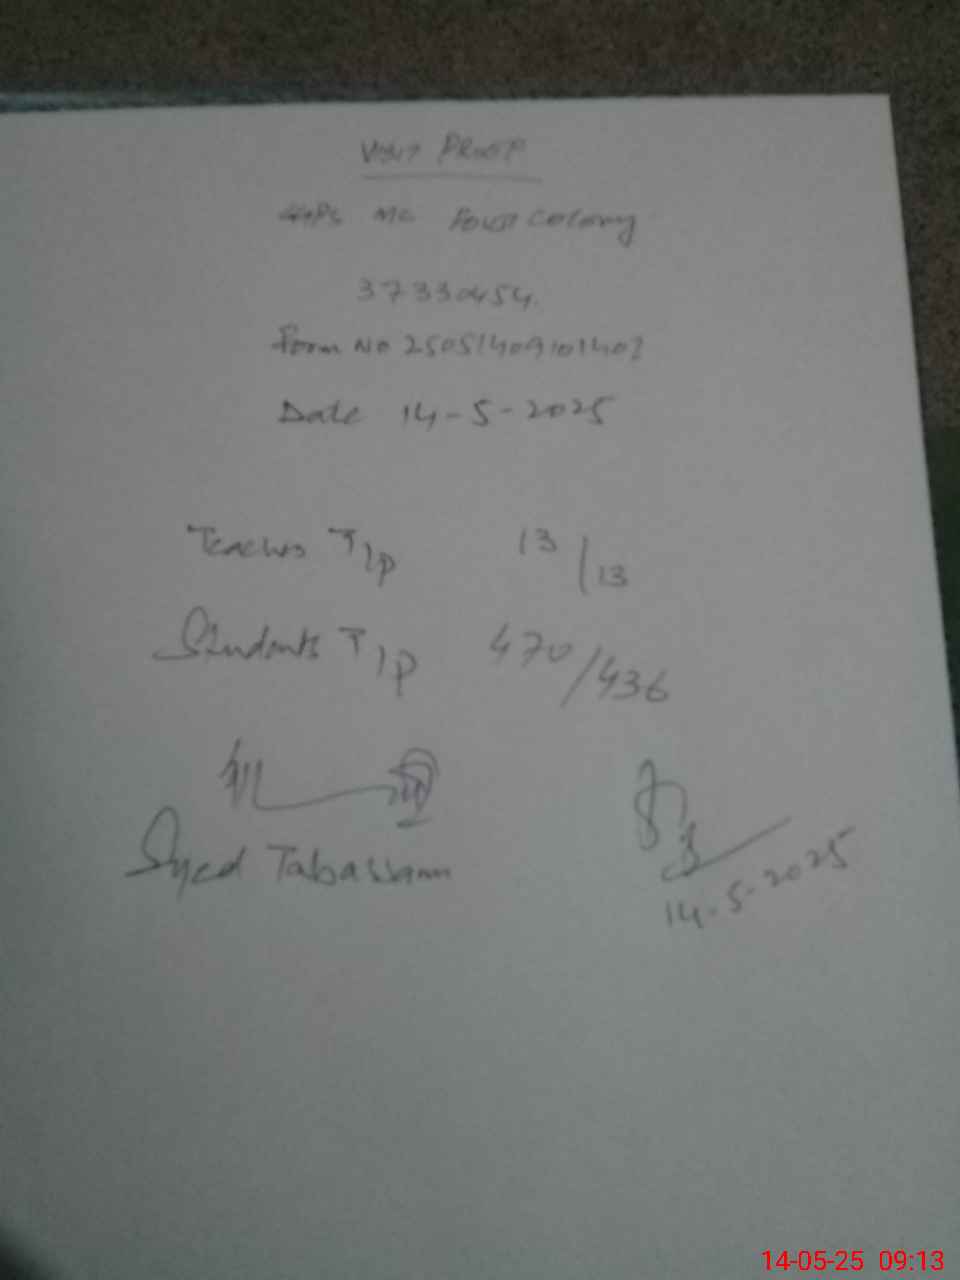 VISIT PROOF
MC Colony
37330454
Form No 25051409101402
Date 14-5-2025
Teachers T/P 13/13
Students T/P 470/436
Syed Tabassam
14-5-2025
14-05-25 09:13